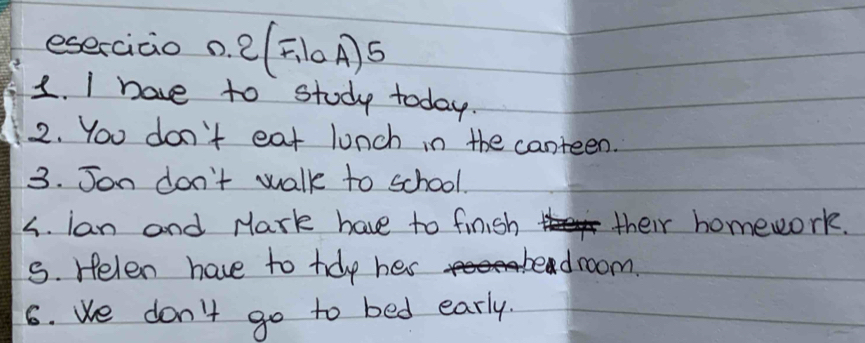 esercicio n.2 (Fila A) 5
1. I have to study today.
2. You don't eat lunch in the canteen.
3. Jon don't walk to school.
4. Ian and Mark have to finish their homework.
5. Helen have to tidy her beadroom.
6. We don't go to bed early.